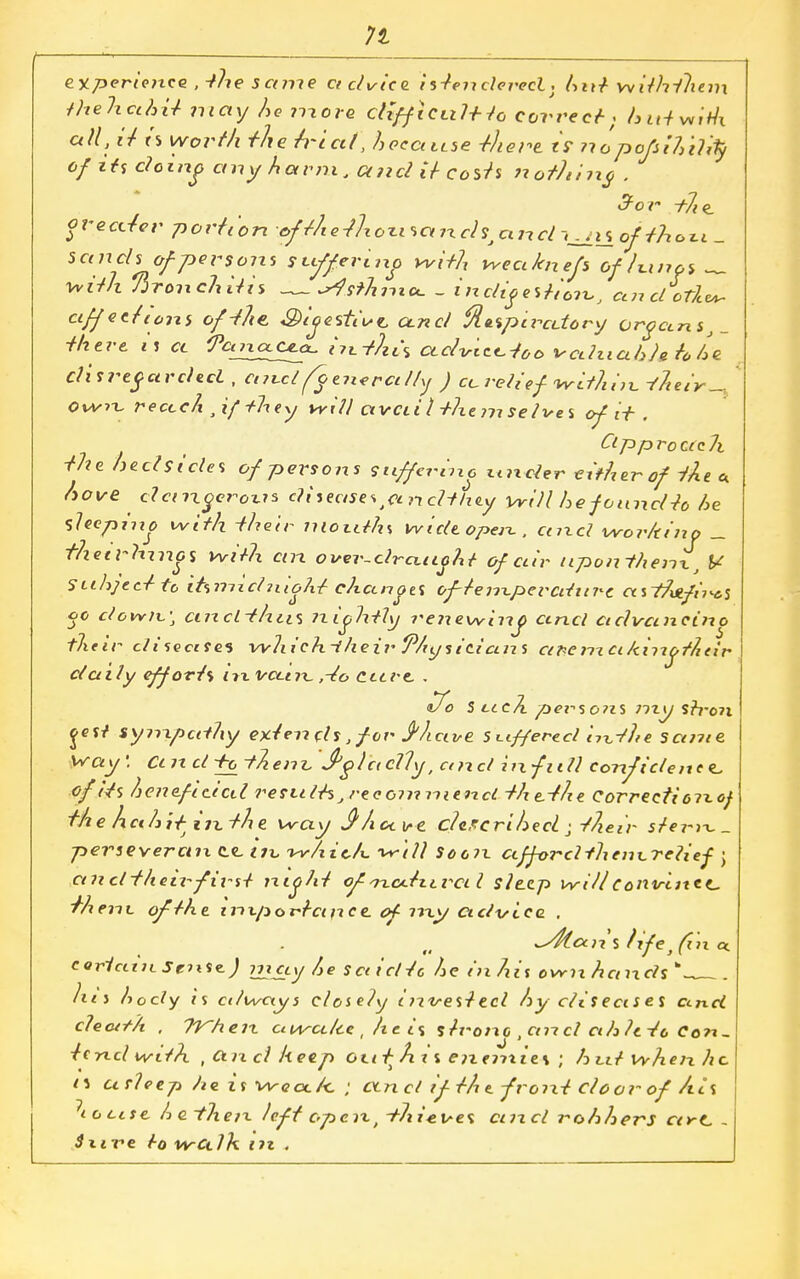 71
experience, the same advice is tendered; but with them
the habit may be more difficult to correct; but with
all, it is worth the trial, because there is no pofsibility
of its doing any harm, and it costs nothing.
For the
greater portion of the thousands, and
sands of persons suffering with weaknefs of lungs —
with Bronchitis — Asthma - indigestion, and other
affections of the Digestive and Respiratory organs, -
there is a Panacea in this advice too valuable to be
disregarded, and (generally) a relief within their —
own reach, if they will avail themselves of it.
Approach
the bedsides of persons suffering under either of the a
bove dangerous diseases, and they will be found to be
sleeping with their mouths wide open, and working —
their lungs with an over-draught of air upon them, &
subject to its midnight changes of temperature as the fires
go down; and thus nightly renewing and advancing
their diseases which their Physicians are making their
daily efforts in vain, to cure.
To such persons my stron
gest sympathy extends, for I have suffered in the same
way; and to them I gladly, and in full confidence
of its beneficial results, recommend the the correction of
the habit in the way I have described; their stern -
perseverance in which will soon afford them relief;
and their first night of natural sleep will convince
them of the importance of my advice.
Man's life, (in a
certain sense) may be said to be in his own hands —.
his body is always closely invested by diseases and
death. When awake, he is strong, and able to con-
tend with, and keep out his enemies; but when he
is asleep he is weak; and if the front door of his
house be then left open, thieves and robbers are -
sure to walk in.